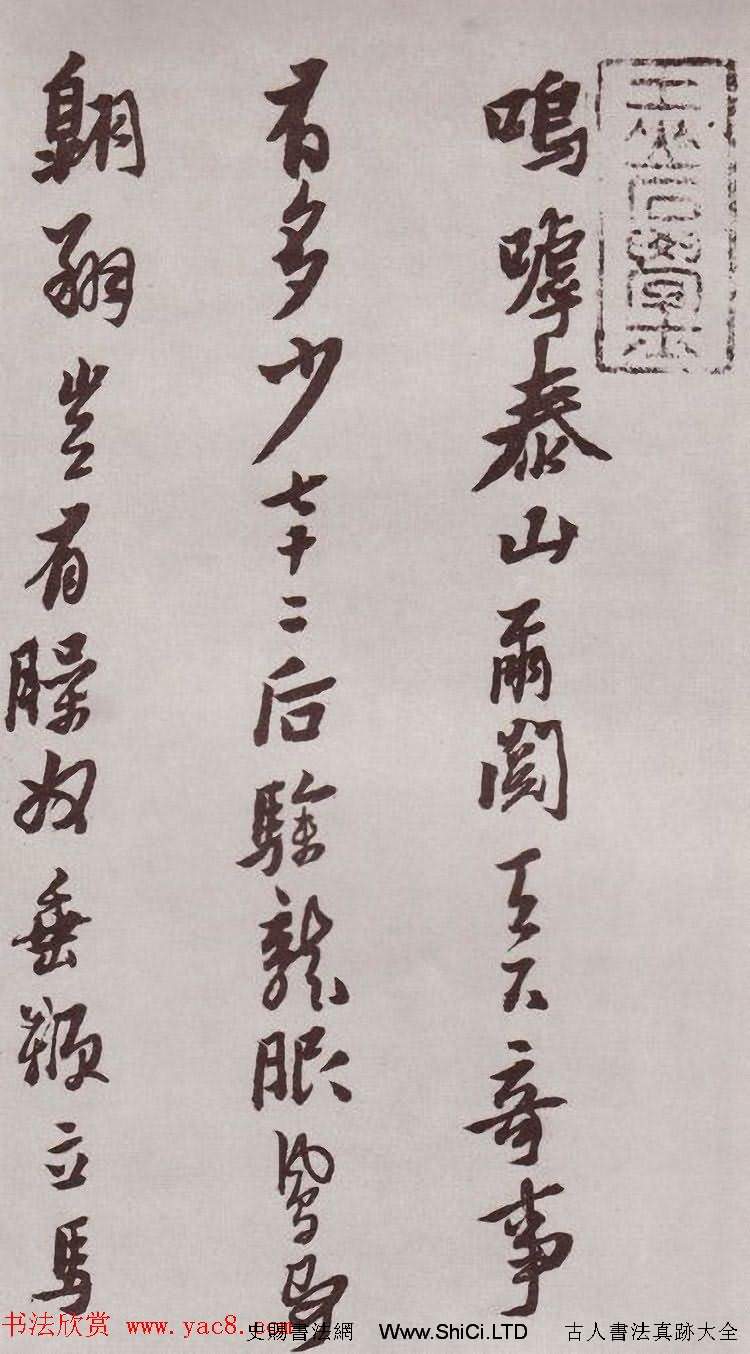 嗚嘑泰山爾閲天下奇事
有多少七十二后驂龍鳳
翱翔豈有臊奴垂鞭立馬
书法欣赏 www.yac8.com
史賜書法網 Www.ShiCi.LTD 古人書法真跡大全